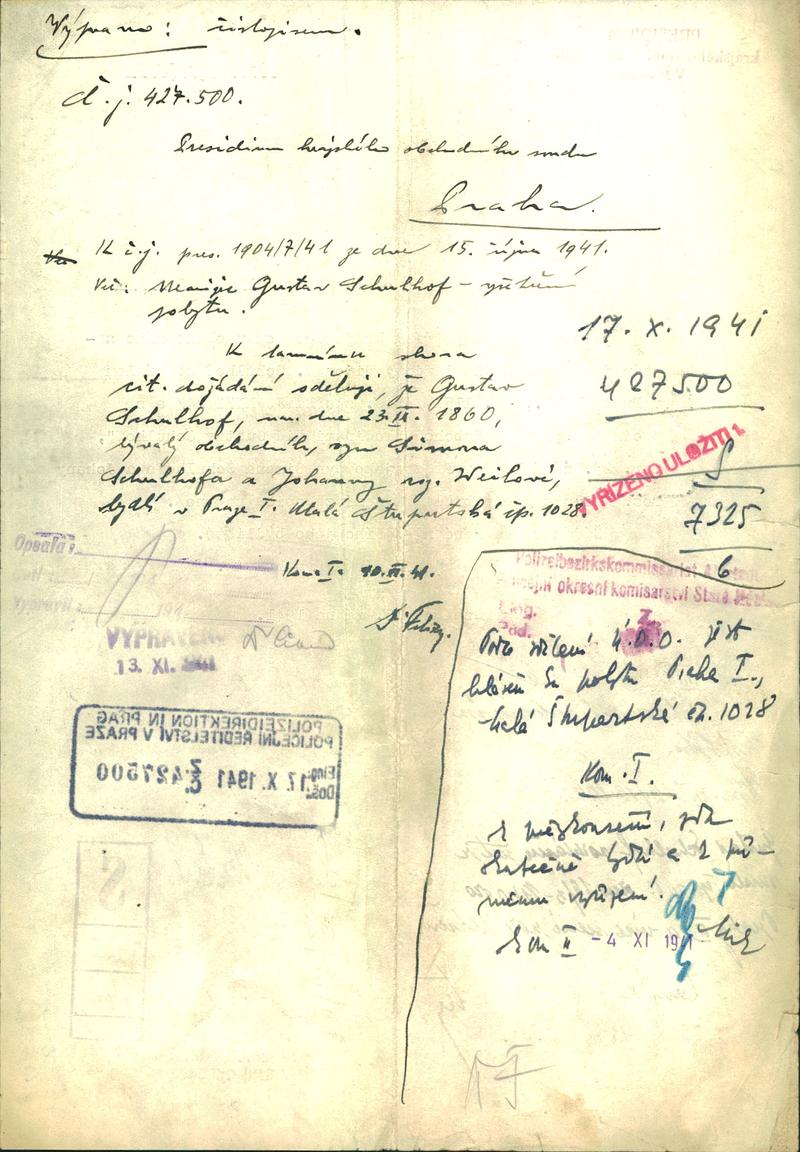 Výprava: čistopisem.
č. j. 427.500.
Presidium krajského obchodního soudu
Praha.
K č.j. pres. 1904/7/41 ze dne 15. října 1941.
Věc: Gustav Schulhof – vyšetření
pobytu.
K tamnímu shora
cit. dožádání sděluji, že Gustav
Schulhof, nar. dne 23.II. 1860,
bývalý obchodník, syn Simona
Schulhofa a Johanny roz. Weilové,
bydlí v Praze I. Malá Štupartská čp. 1028.
Kom I. 10.XI.41.
17. X. 1941
427500
VYŘÍZENO ULOŽITI
7325
6
Opsal:
Vypravil: 194
VYPRAVENO
13. XI. 1941
POLIZEIDIREKTION IN PRAG
POLICEJNÍ ŘEDITELSTVÍ V PRAZE
Eing.: Doš.: 17. X. 1941 Z. č. 427500
Polizeibezirkskommissariat
Policejní okresní komisařství Stará
Eing.
Pod.
Podle sdělení jest
hlášen k pobytu Praha I.,
Malá Štupartská čp. 1028
Kom. I.
k zda
skutečně bydlí a k
vyřízení.
II -4 XI 1941